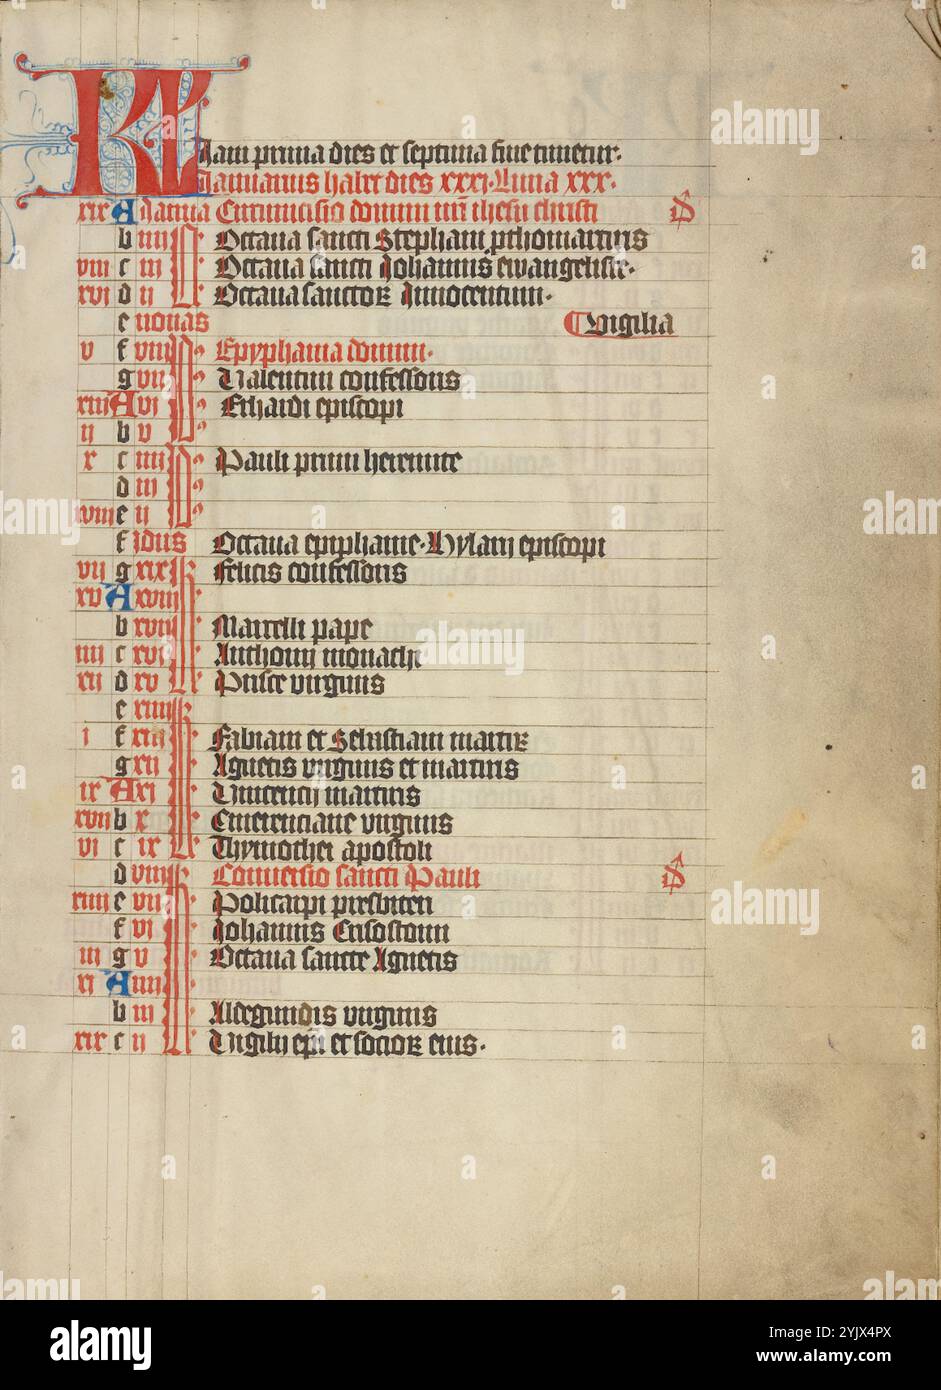 KL Jani prima dies et septima fine timetur.
Januarius habet dies xxxi. Luna xxx.
xix A Janua Circumcisio domini nri ihesu christi S
b iiii Octaua sancti Stephani pthomartiris
viii c iii Octaua sancti Johannis ewangeliste.
xvi d ii Octaua sanctoꝝ Innocentum.
e nonas Vigilia
v f viii Epyphania domini.
g vii Valentini confessoris
xiii A vi Erhardi episcopi
ii b v
x c iiii Pauli primi heremite
d iii
xviii e ii
f Idus Octaua epiphanie. Hylarij episcopi
vii g xix Felicis confessoris
xv A xviii
b xvii Marcelli pape
iiii c xvi Anthonij monachi
xii d xv Prisce virginis
e xiiii
i f xiii Fabiani et Sebistiani martiꝝ
g xii Agnetis virginis et martiris
ix A xi Vincencij martiris
xvii b x Emerenciane virginis
vi c ix Thymothei apostoli
d viii Conuersio sancti Pauli S
xiiii e vii Policarpi presbiteri
f vi Johannis Crisostomi
iii g v Octaua sancte Agnetis
xi A iiii
b iii Aldegundis virginis
xix c ii Virgilij epi et socioꝝ eius.
alamy
a
alamy
Image ID: 2YJX4PX
www.alamy.com